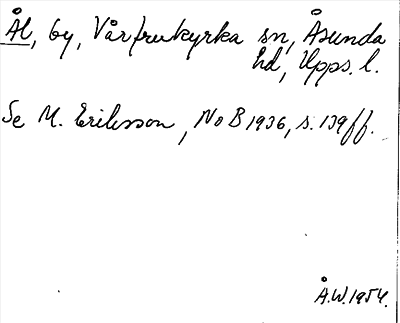 Ål, by, Vårfrukyrka sn, Åsunda
hd, Upps. l.
Se M. Eriksson, NoB 1936, s. 139ff.
Å.W. 1954.